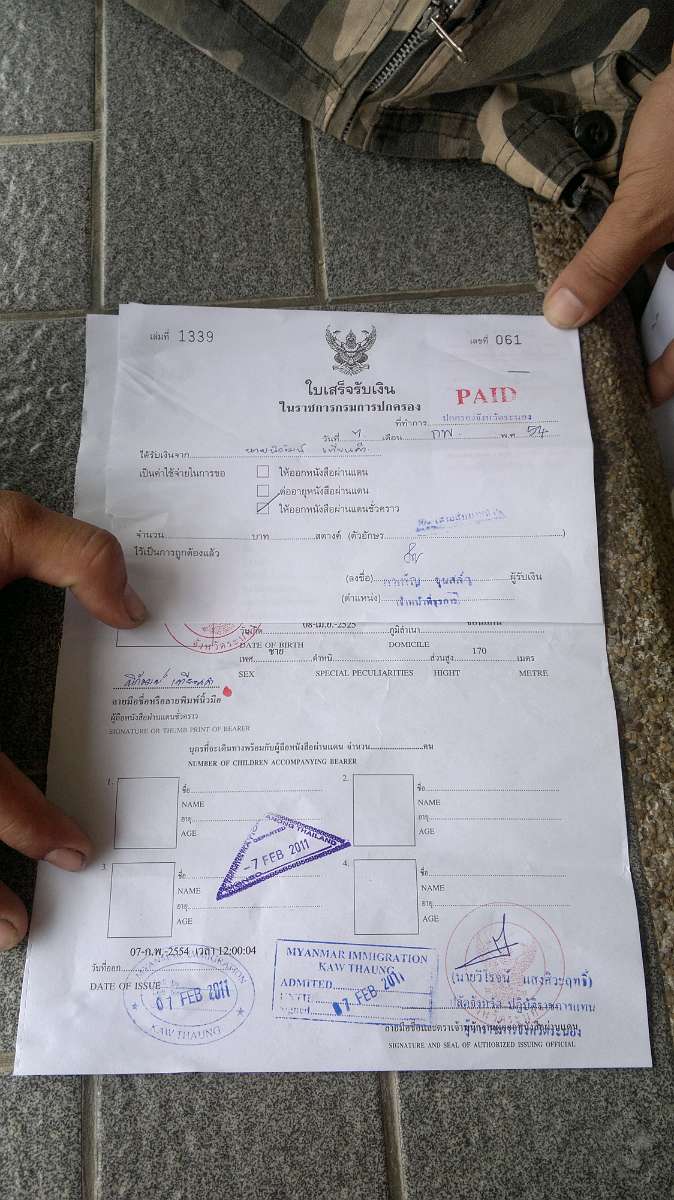 เล่มที่ 1339
เลขที่ 061
ใบเสร็จรับเงิน
ในราชการกรมการปกครอง
PAID
ที่ทำการ ปกครองจังหวัดระนอง
วันที่ 7 เดือน กพ. พ.ศ. 54
ได้รับเงินจาก
เป็นค่าใช้จ่ายในการขอ
ให้ออกหนังสือผ่านแดน
ต่ออายุหนังสือผ่านแดน
ให้ออกหนังสือผ่านแดนชั่วคราว
จำนวน บาท สตางค์ (ตัวอักษร )
ไว้เป็นการถูกต้องแล้ว
(ลงชื่อ) ผู้รับเงิน
(ตำแหน่ง) เจ้าหน้าที่ธุรการ
วันเกิด 08-เม.ย.-2525 ภูมิลำเนา
DATE OF BIRTH DOMICILE
เพศ ชาย ตำหนิ ส่วนสูง 170 เมตร
SEX SPECIAL PECULIARITIES HIGHT METRE
ลายมือชื่อหรือลายพิมพ์นิ้วมือ
ผู้ถือหนังสือผ่านแดนชั่วคราว
SIGNATURE OR THUMB PRINT OF BEARER
บุตรที่จะเดินทางพร้อมกับผู้ถือหนังสือผ่านแดน จำนวน คน
NUMBER OF CHILDREN ACCOMPANYING BEARER
1. ชื่อ
NAME
อายุ
AGE
2. ชื่อ
NAME
อายุ
AGE
DEPARTED
-7 FEB 2011
3. ชื่อ
NAME
อายุ
AGE
4. ชื่อ
NAME
อายุ
AGE
07-ก.พ.-2554 เวลา 12:00:04
วันที่ออก
DATE OF ISSUE
07 FEB 2011
KAW THAUNG
MYANMAR IMMIGRATION
KAW THAUNG
ADMITED
07 FEB 2011
(นายวิโรจน์ แสงศิวะฤทธิ์)
ปลัดจังหวัด ปฏิบัติราชการแทน
ลายมือชื่อและตราเจ้าพนักงานผู้ออกหนังสือผ่านแดน
ผู้ว่าราชการจังหวัดระนอง
SIGNATURE AND SEAL OF AUTHORIZED ISSUING OFFICIAL